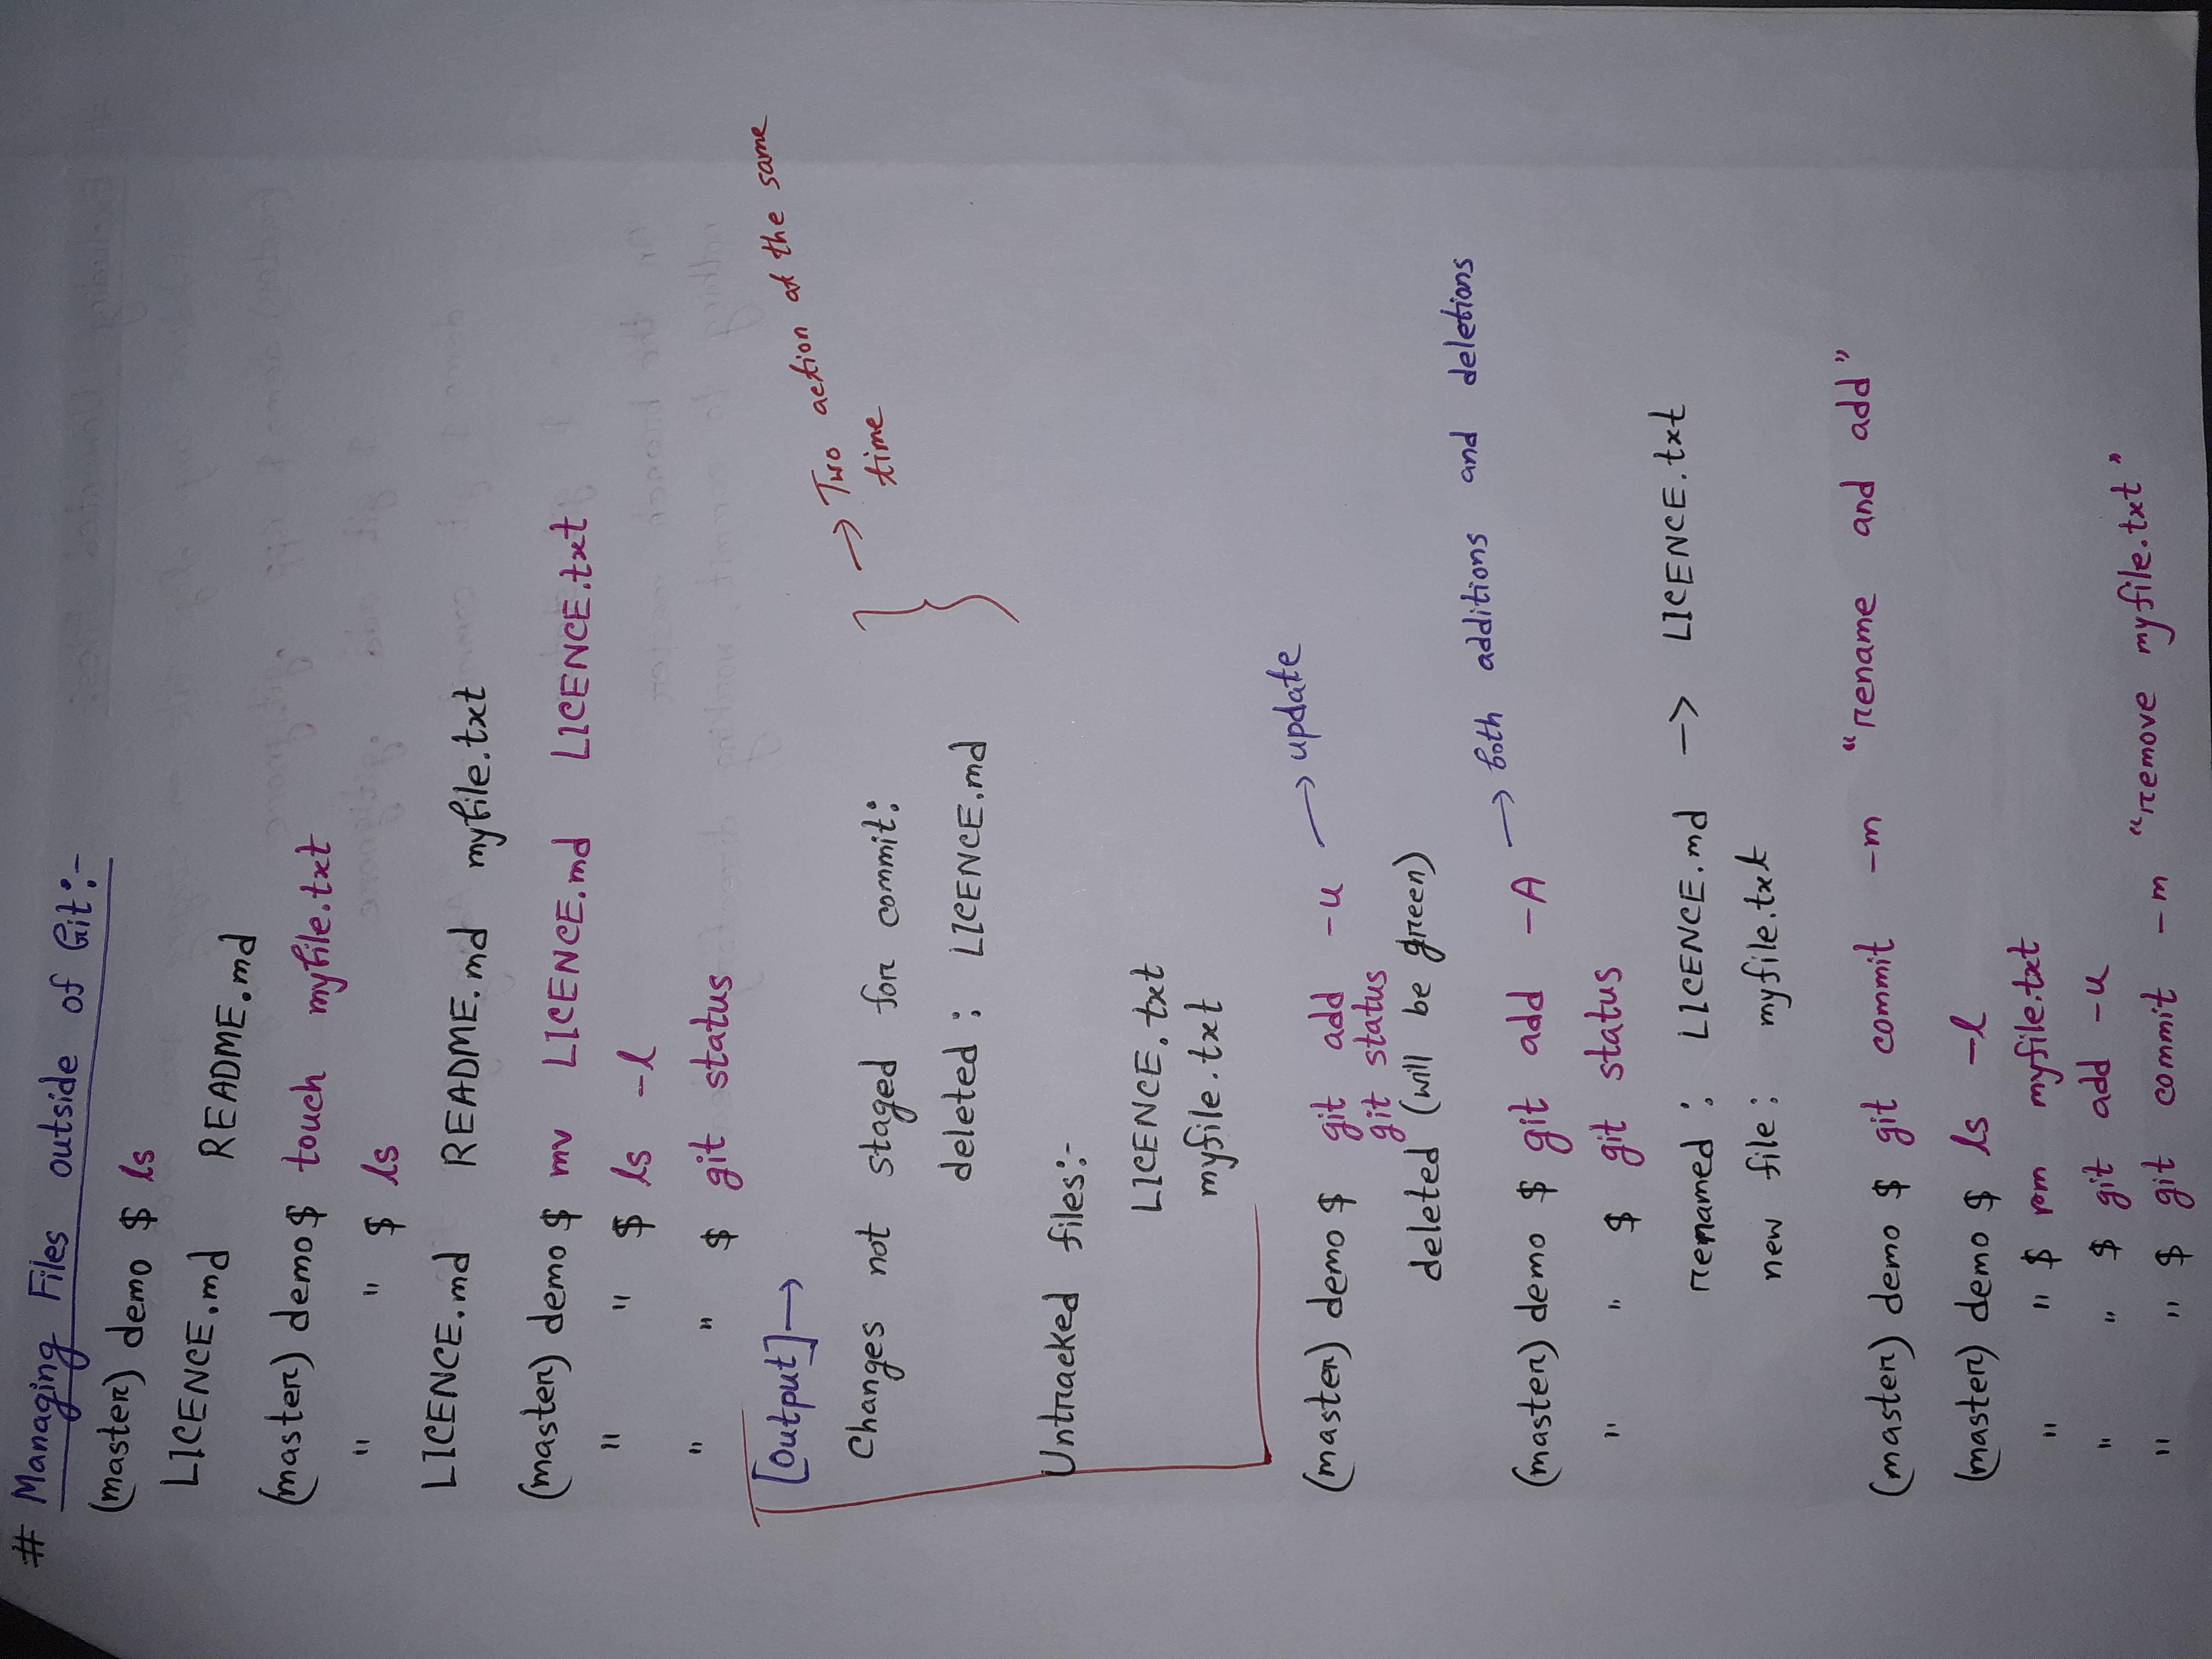 # Managing Files outside of Git:-
(master) demo $ ls
LICENCE.md README.md
(master) demo $ touch myfile.txt
" " $ ls
LICENCE.md README.md myfile.txt
(master) demo $ mv LICENCE.md LICENCE.txt
" " $ ls -l
" " $ git status
[Output]→
→ Two action at the same
time
Changes not staged for commit:
deleted : LICENCE.md
Untracked files:-
LICENCE.txt
myfile.txt
(master) demo $ git add -u → update
git status
deleted (will be green)
(master) demo $ git add -A → both additions and deletions
" " $ git status
renamed : LICENCE.md -> LICENCE.txt
new file : myfile.txt
(master) demo $ git commit -m "rename and add"
(master) demo $ ls -l
" " $ rm myfile.txt
" " $ git add -u
" " $ git commit -m "remove myfile.txt"